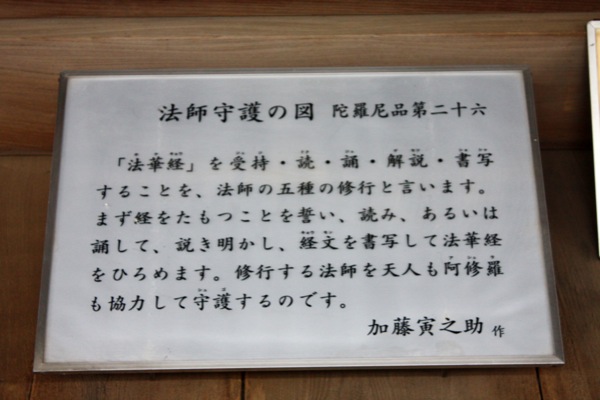 法師守護の図 陀羅尼品第二十六
「法華経」を受持・読・誦・解説・書写
することを、法師の五種の修行と言います。
まず経をたもつことを誓い、読み、あるいは
誦して、説き明かし、経文を書写して法華経
をひろめます。修行する法師を天人も阿修羅
も協力して守護するのです。
加藤寅之助 作